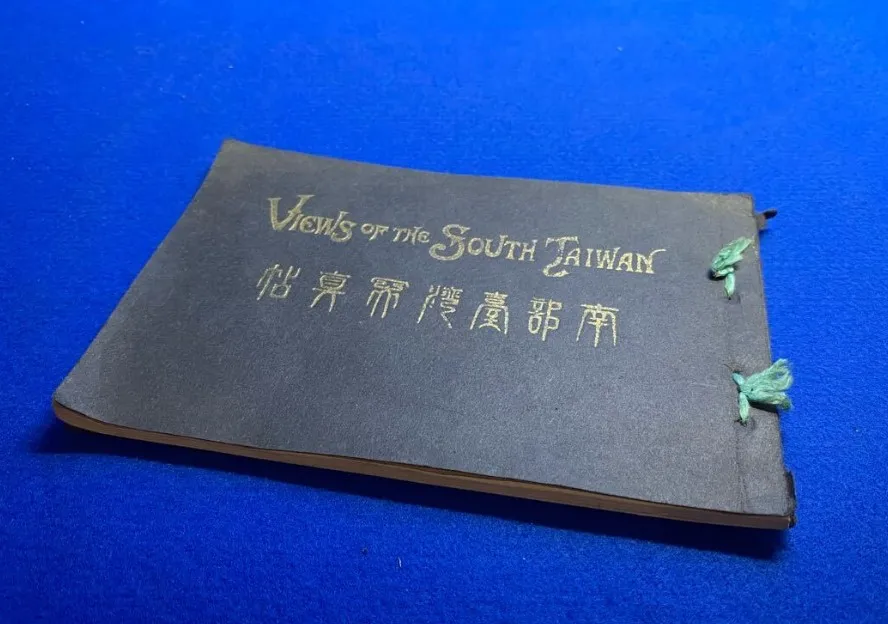 VIEWS OF THE SOUTH TAIWAN
南部臺灣寫真帖